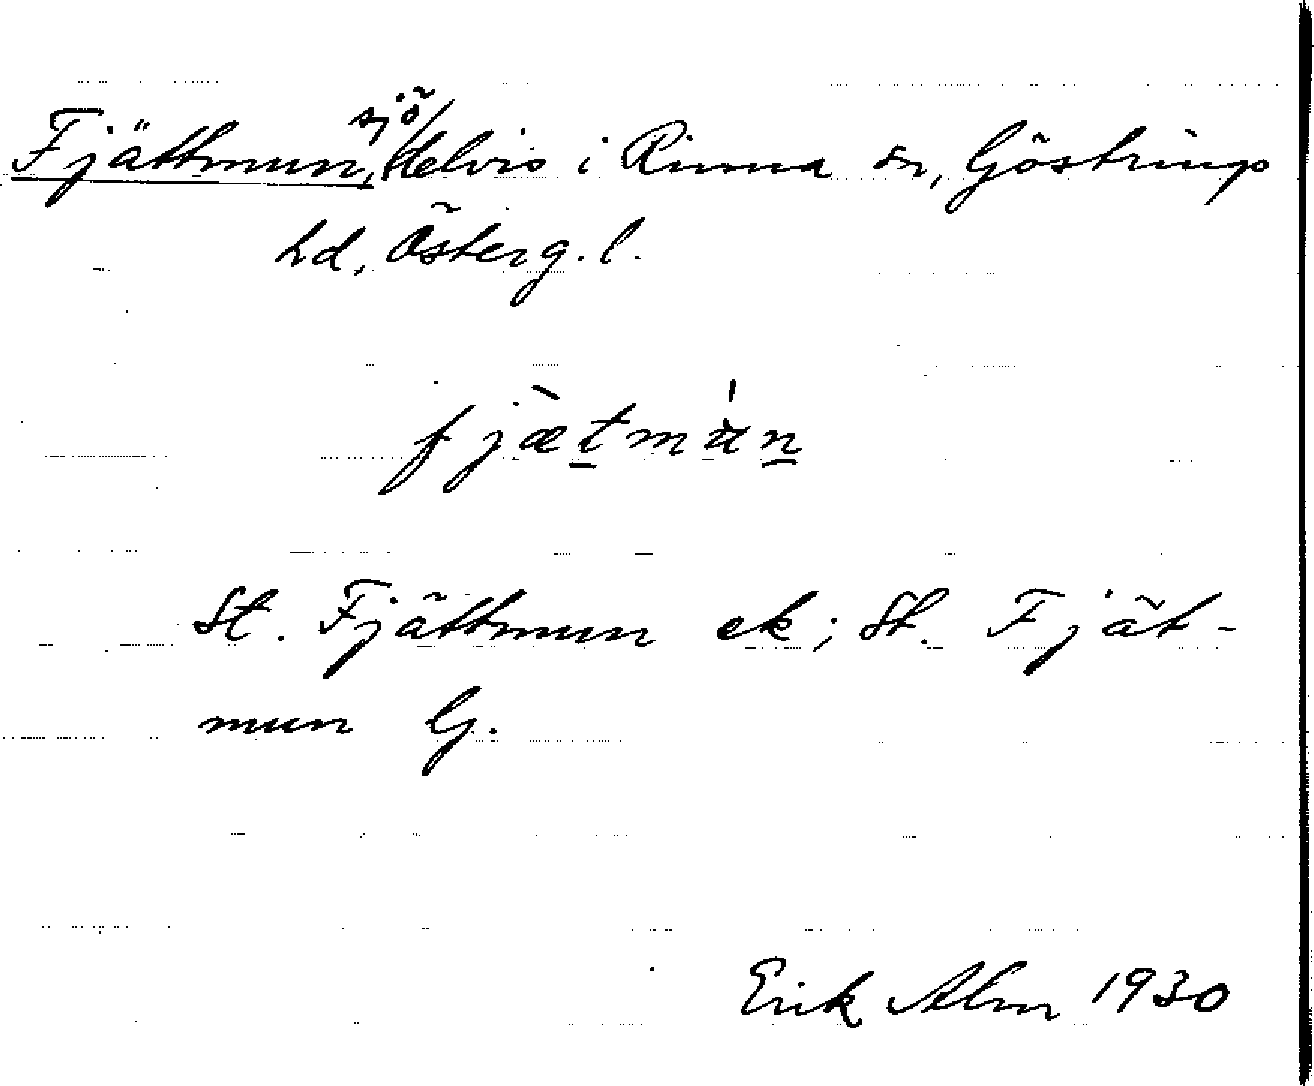 Fjättmun, sjö delvis i Rinna sn, Göstrings
hd, Österg. l.
fjæ̀tmu̍n
St. Fjättmun ek; St. Fjät-
mun G.
Erik Alm 1930